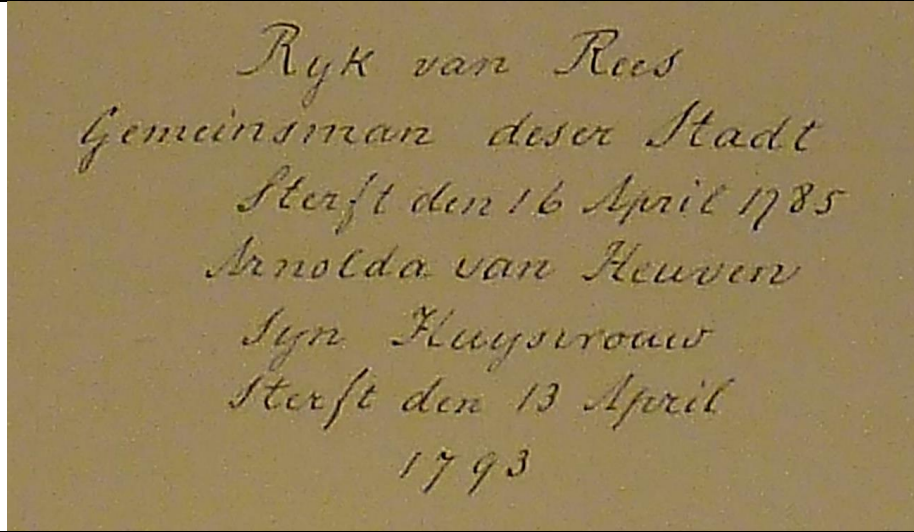 Ryk van Rees
Gemeinsman deser Stadt
Sterft den 16 April 1785
Arnolda van Heuven
Syn Huysvrouw
Sterft den 13 April
1793